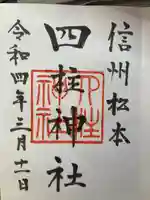 信州松本
四柱神社
令和四年三月十一日